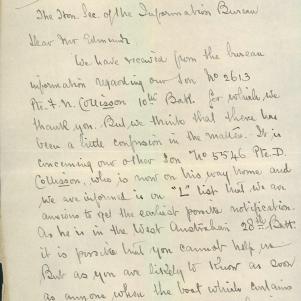 The Hon. Sec. of the Information Bureau
Dear Mr Edmunds
We have received from the bureau
information regarding our Son No 2613
Pte. F. N. Collisson 10th Batt. for which we
thank you. But we think that there has
been a little confusion in the matter. It is
concerning our other Son No 5546 Pte. D.
Collisson, who is now on his way home and
we are informed is on "L" list that we are
anxious to get the earliest possible notification.
As he is in the West Australian 28th Batt.
it is possible that you cannot help us
But as you are likely to know as soon
as anyone when the boat which contains